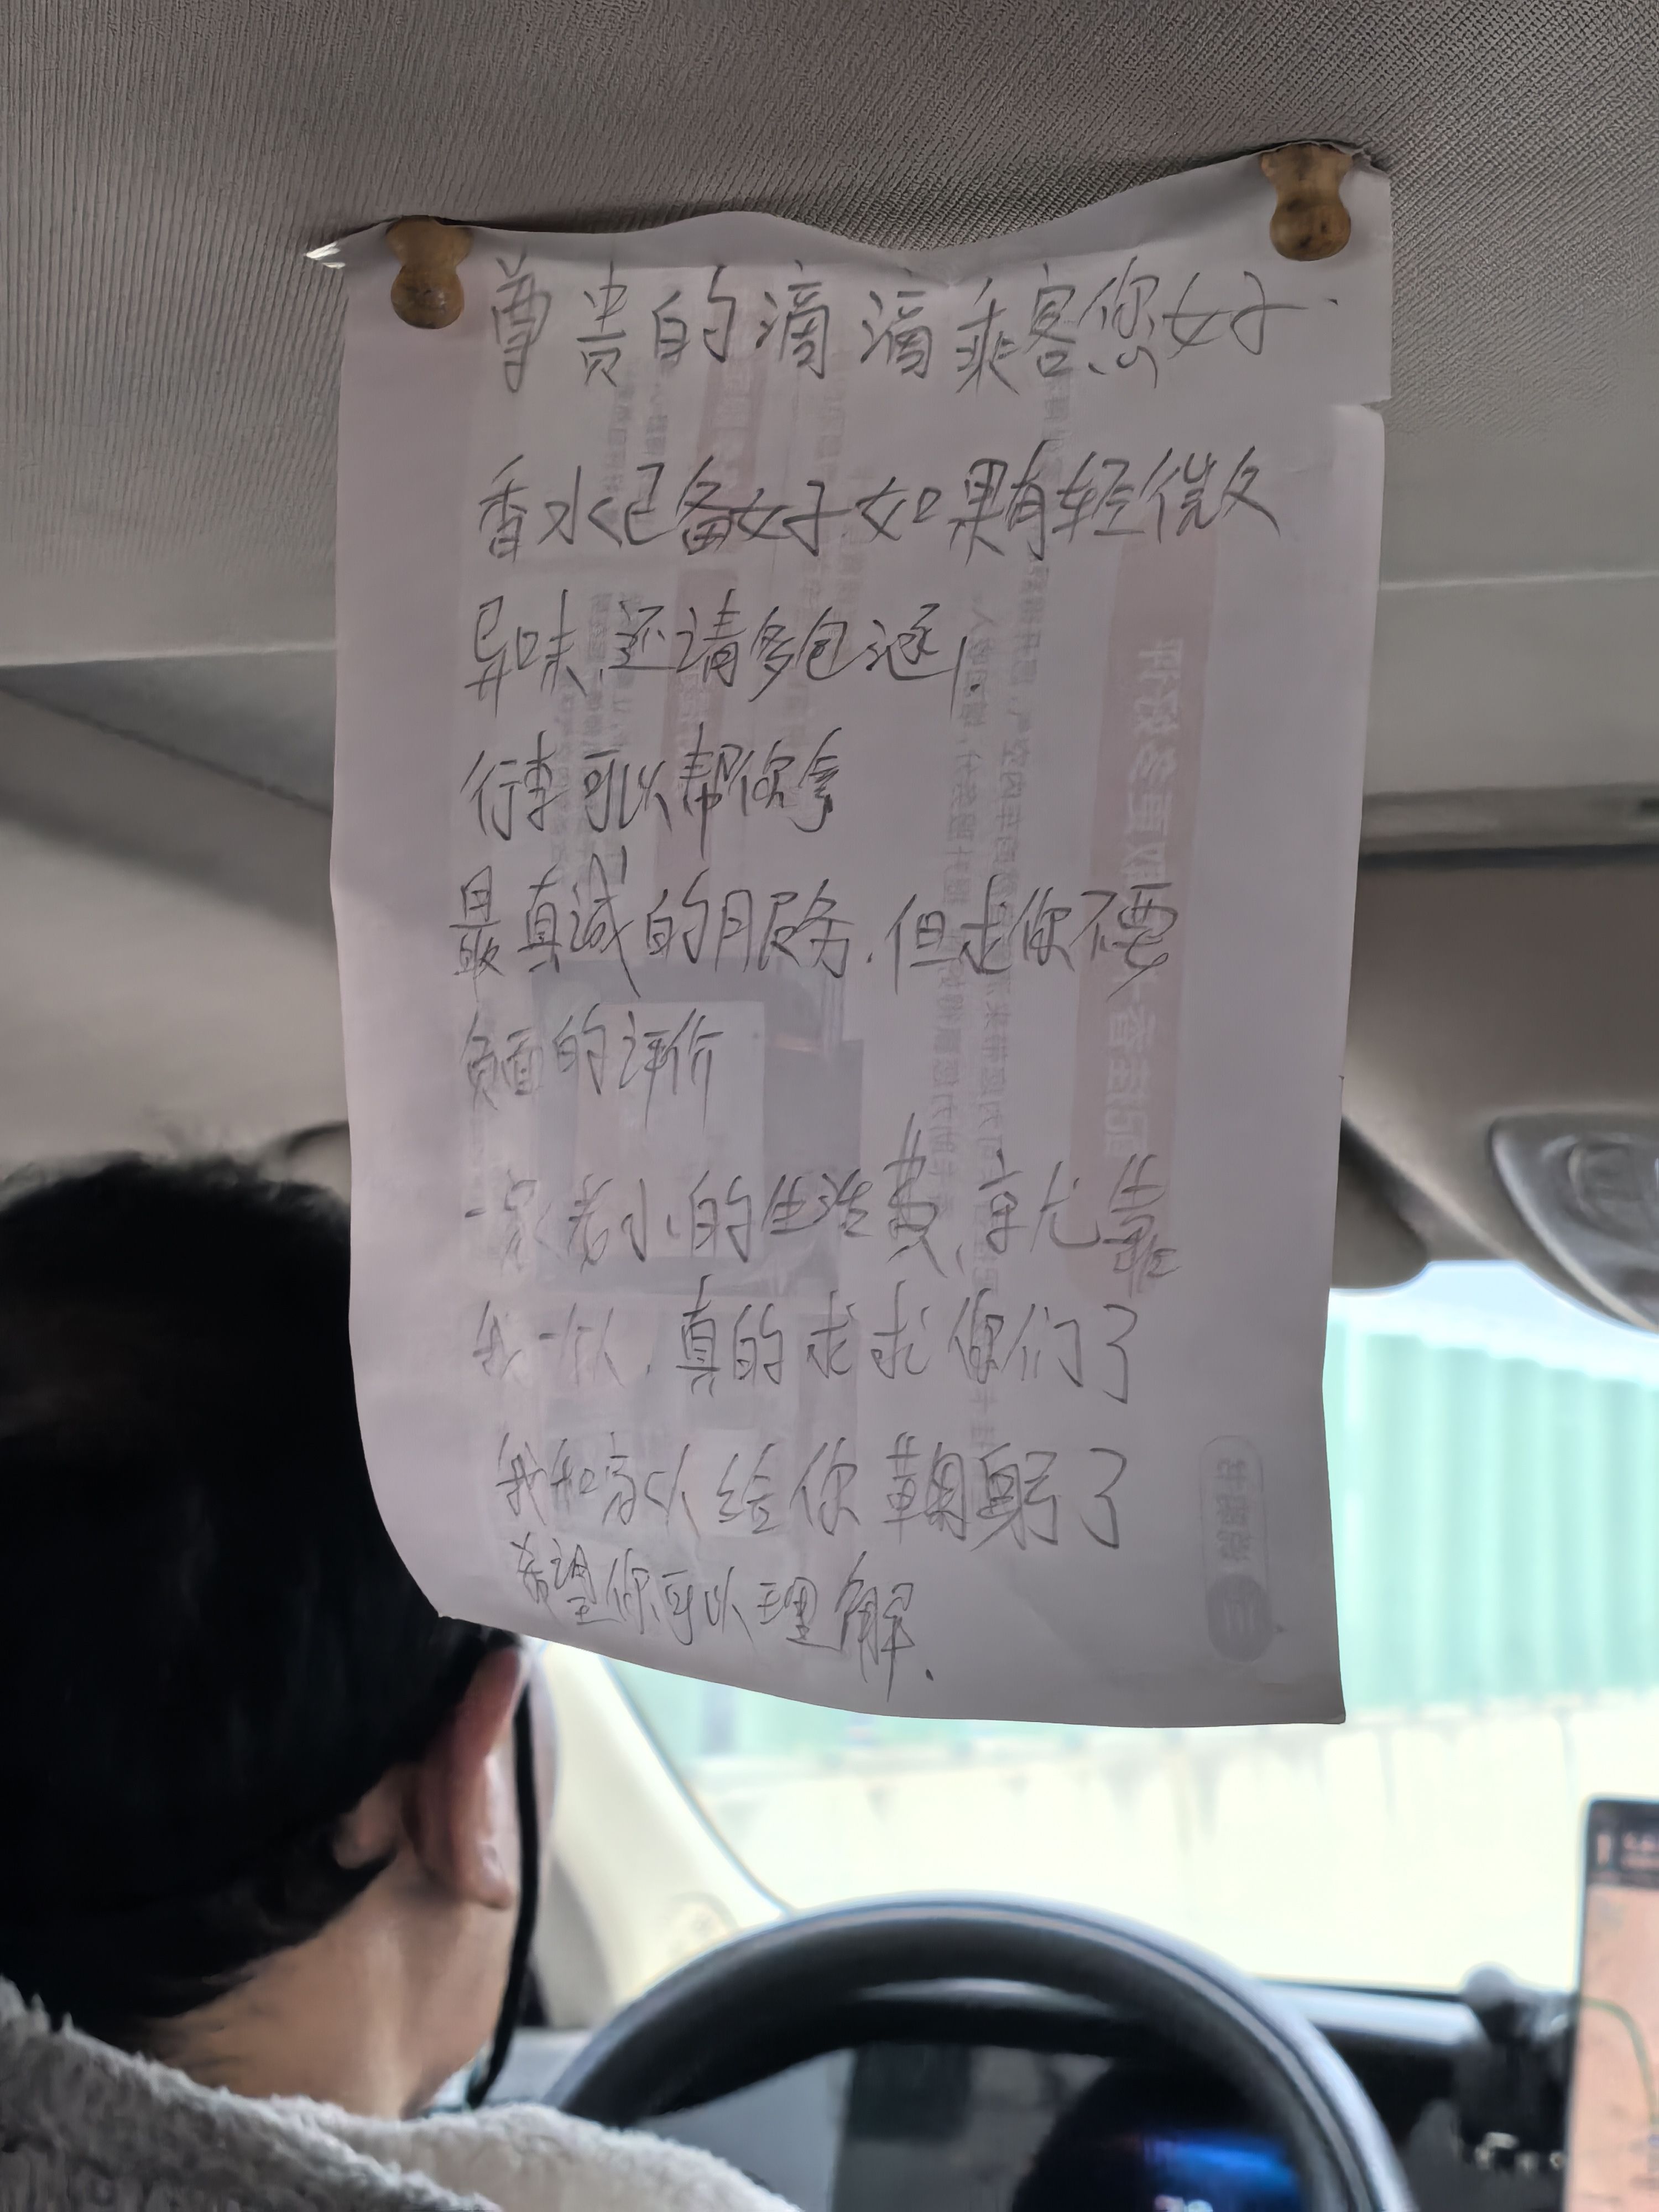 尊贵的滴滴乘客您好
香水已备好如果有轻微
异味,还请多包涵!
行李可以帮你拿
最真诚的服务.但求你不要
负面的评价
一家老小的生活费,就靠
我一个人.真的求求你们了
我和家人给你鞠躬了
希望你可以理解.